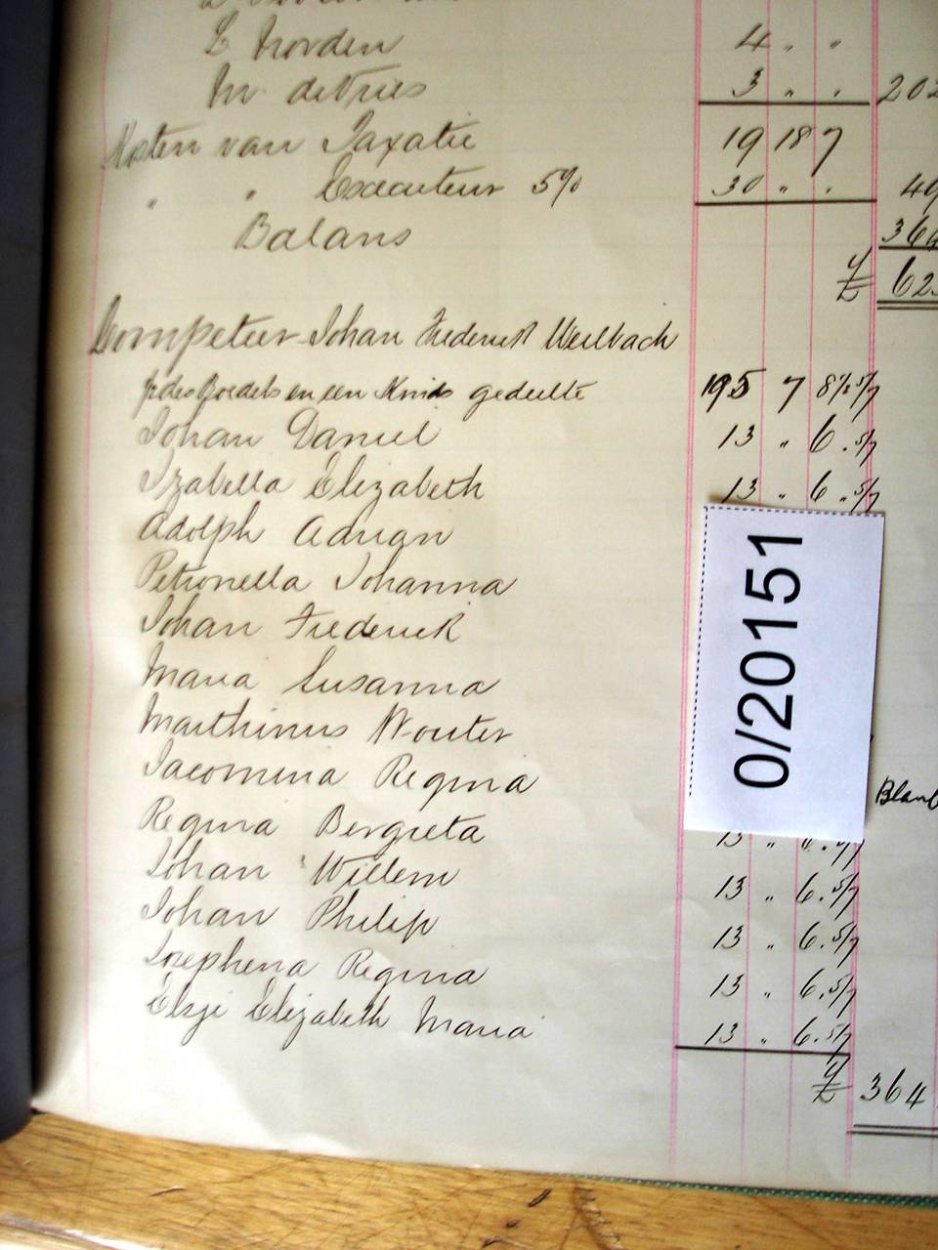 L Norden 4 " "
M deVries 3 " " 202
Kosten van Taxatie 19 18 7
" " Executeur 5% 30 " "
Balans 364
£ 62
Competeer Johan Frederick Weilbach
½ des Boedels en een Kinds gedeelte 195 7 8½ 5/7
Johan Daniel 13 " 6 . 5/7
Izabella Elizabeth 13 " 6 . 5/7
Adolph Adrian
Petronella Johanna
Johan Frederick
Maria Susanna
Marthinus Wouter
Jacomina Regina
Regina Bergieta 13 " 6 . 5/7
Johan Willem 13 " 6 . 5/7
Johan Philip 13 " 6 . 5/7
Josephena Regina 13 " 6 . 5/7
Elsje Elizabeth Maria 13 " 6 . 5/7
£ 364
0/20151